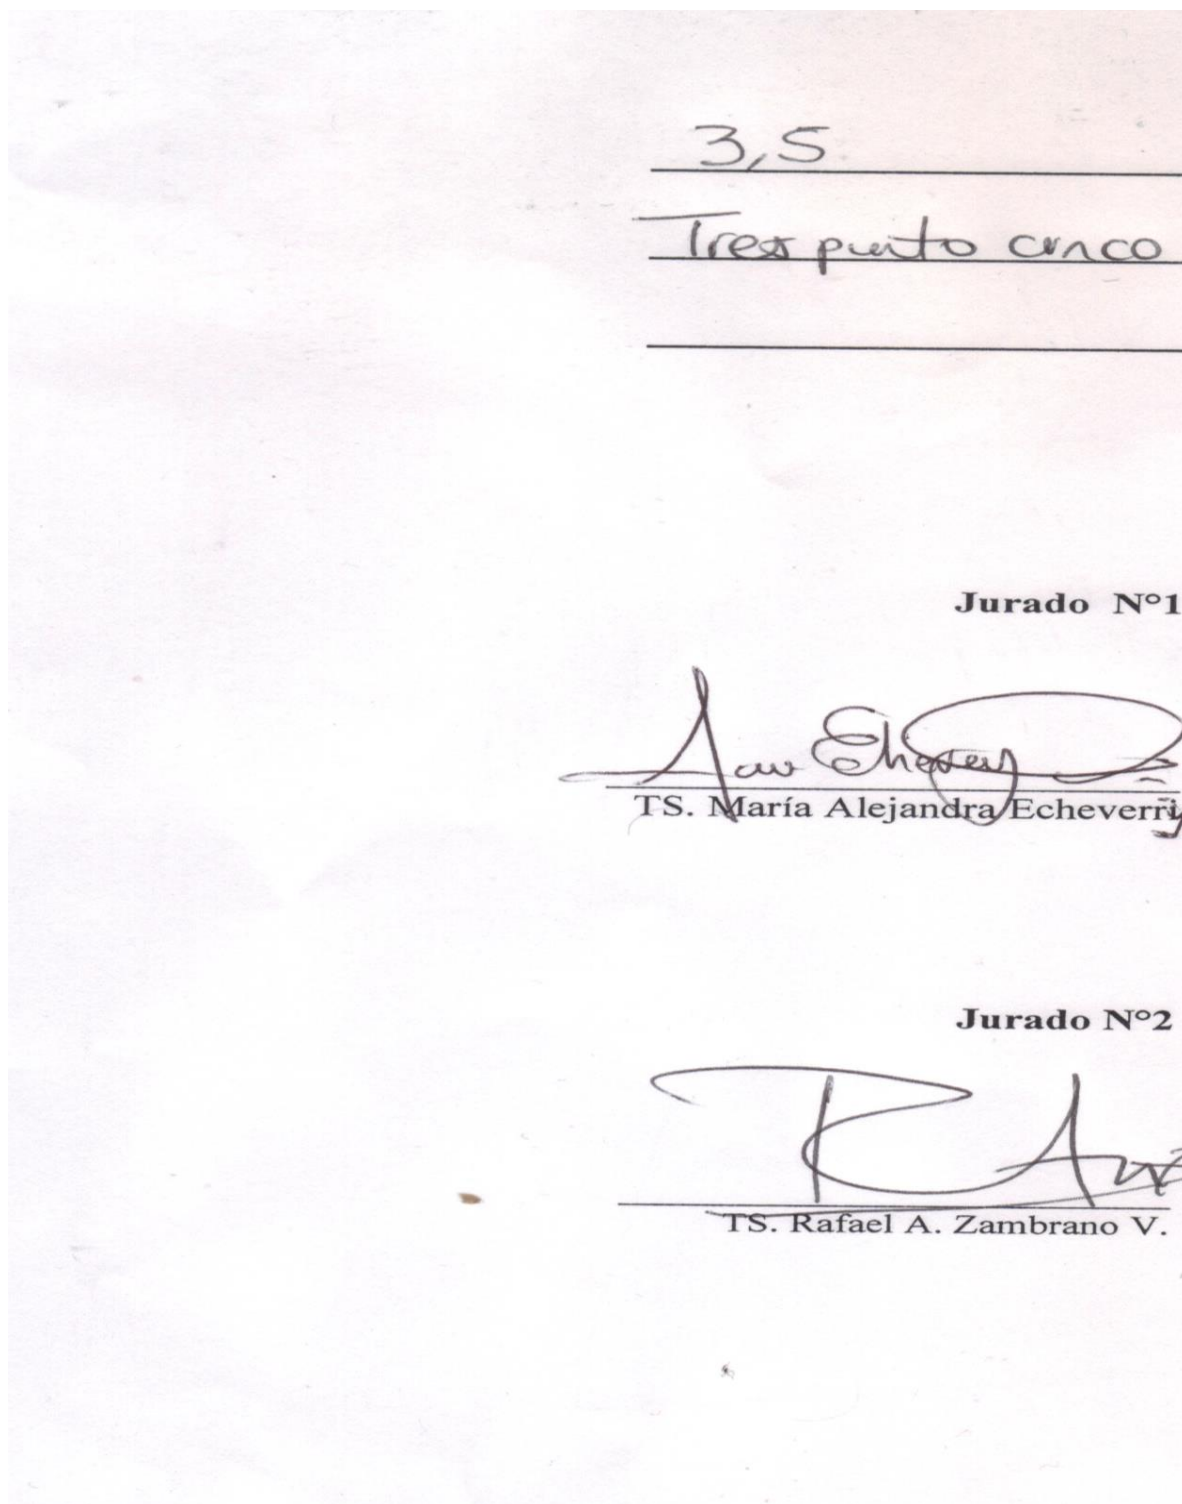 3,5
Tres punto cinco
Jurado N°1
TS. María Alejandra Echeverri
Jurado N°2
TS. Rafael A. Zambrano V.